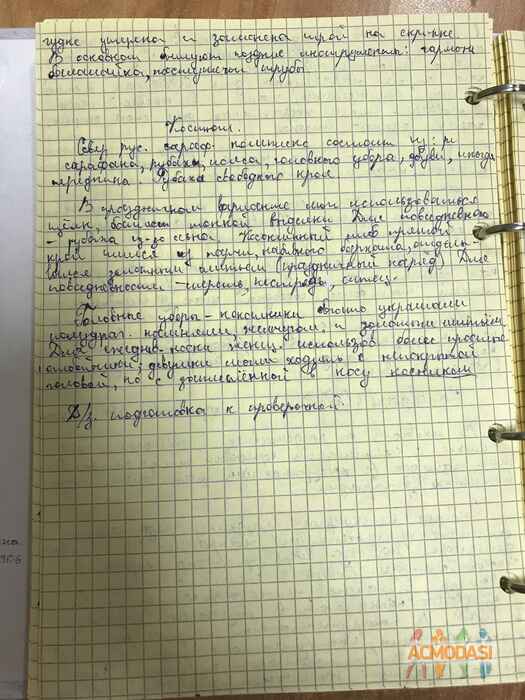 гудке утеряна и заменена игрой на скрипке
В основном бытуют поздние инструменты: гармонь
балалайка, пастушеской трубы
Костюм.
Север. рус. сараф. комплекс состоит из:
сарафана, рубахи, пояса, головного убора, обуви, иногда
передника. Рубаха свободного кроя
В праздничном варианте мог использоваться
шёлк, батист тонкой выделки Для повседневного
- рубаха из-за Косоклинный или прямой
крой шился из парчи, бархата,
золотным шитьём (праздничный наряд) Для
повседневности - шерсть, пестрядь, ситец.
Головные уборы - кокошники богато украшали
полудраг. камнями, жемчугом, и золотым шитьём
Для ежеднев. носки женщ. использов. более простые
; девушки могли ходить с непокрытой
головой, но с в косу косником
Д/з. подготовка к проверочной
на
906
ACMODASI